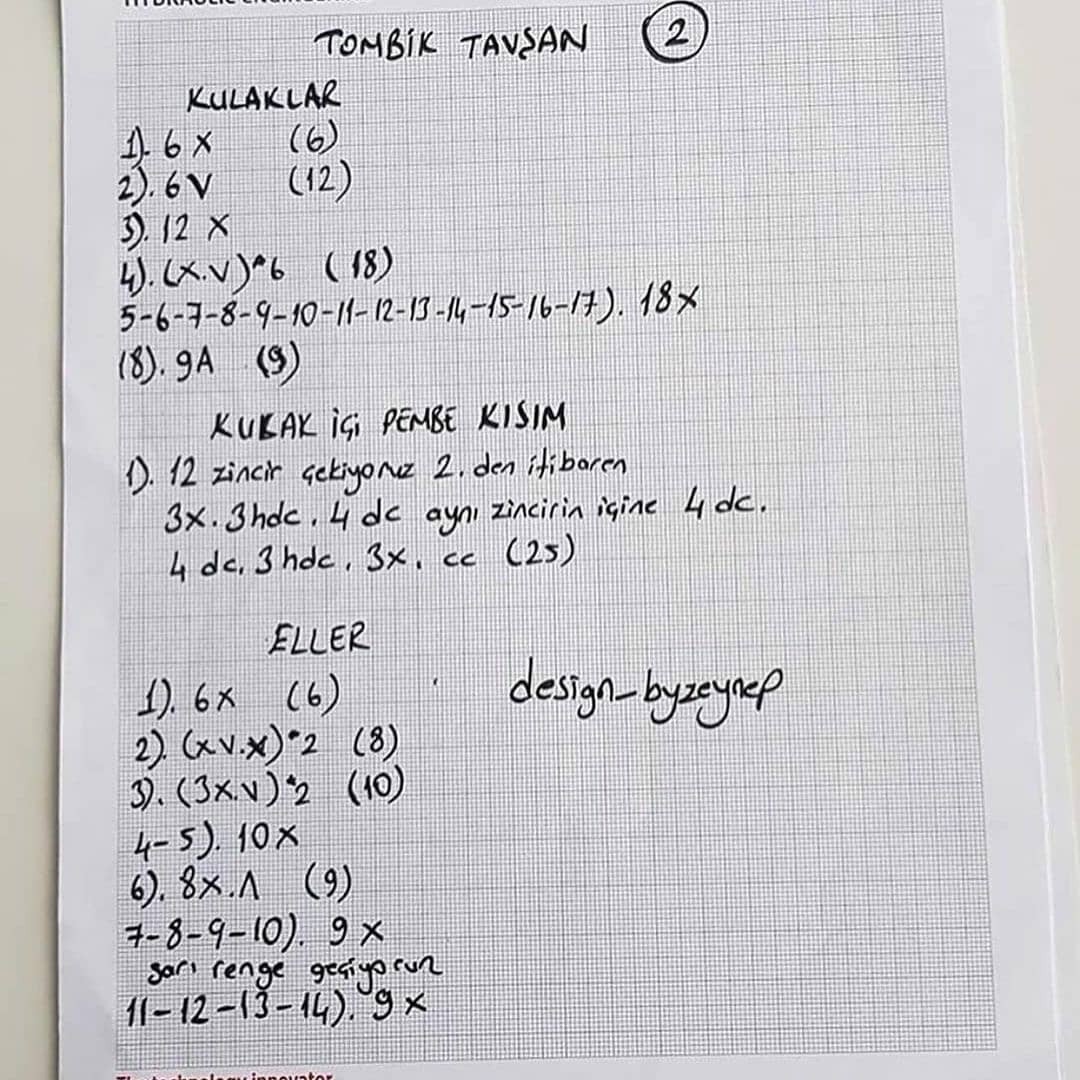 TOMBİK TAVŞAN 2
KULAKLAR
1). 6 X (6)
2). 6 V (12)
3). 12 X
4). (X.V)*6 (18)
5-6-7-8-9-10-11-12-13-14-15-16-17). 18x
18). 9A (9)
KULAK İÇİ PEMBE KISIM
1). 12 zincir çekiyoruz 2. den itibaren
3x. 3hdc. 4 dc aynı zincirin içine 4 dc.
4 dc. 3 hdc. 3x. cc (25)
ELLER
1). 6x (6)
design_byzeynep
2). (xv.x)*2 (8)
3). (3x.v)*2 (10)
4-5). 10x
6). 8x.Λ (9)
7-8-9-10). 9 x
sarı renge geçiyoruz
11-12-13-14). 9 x